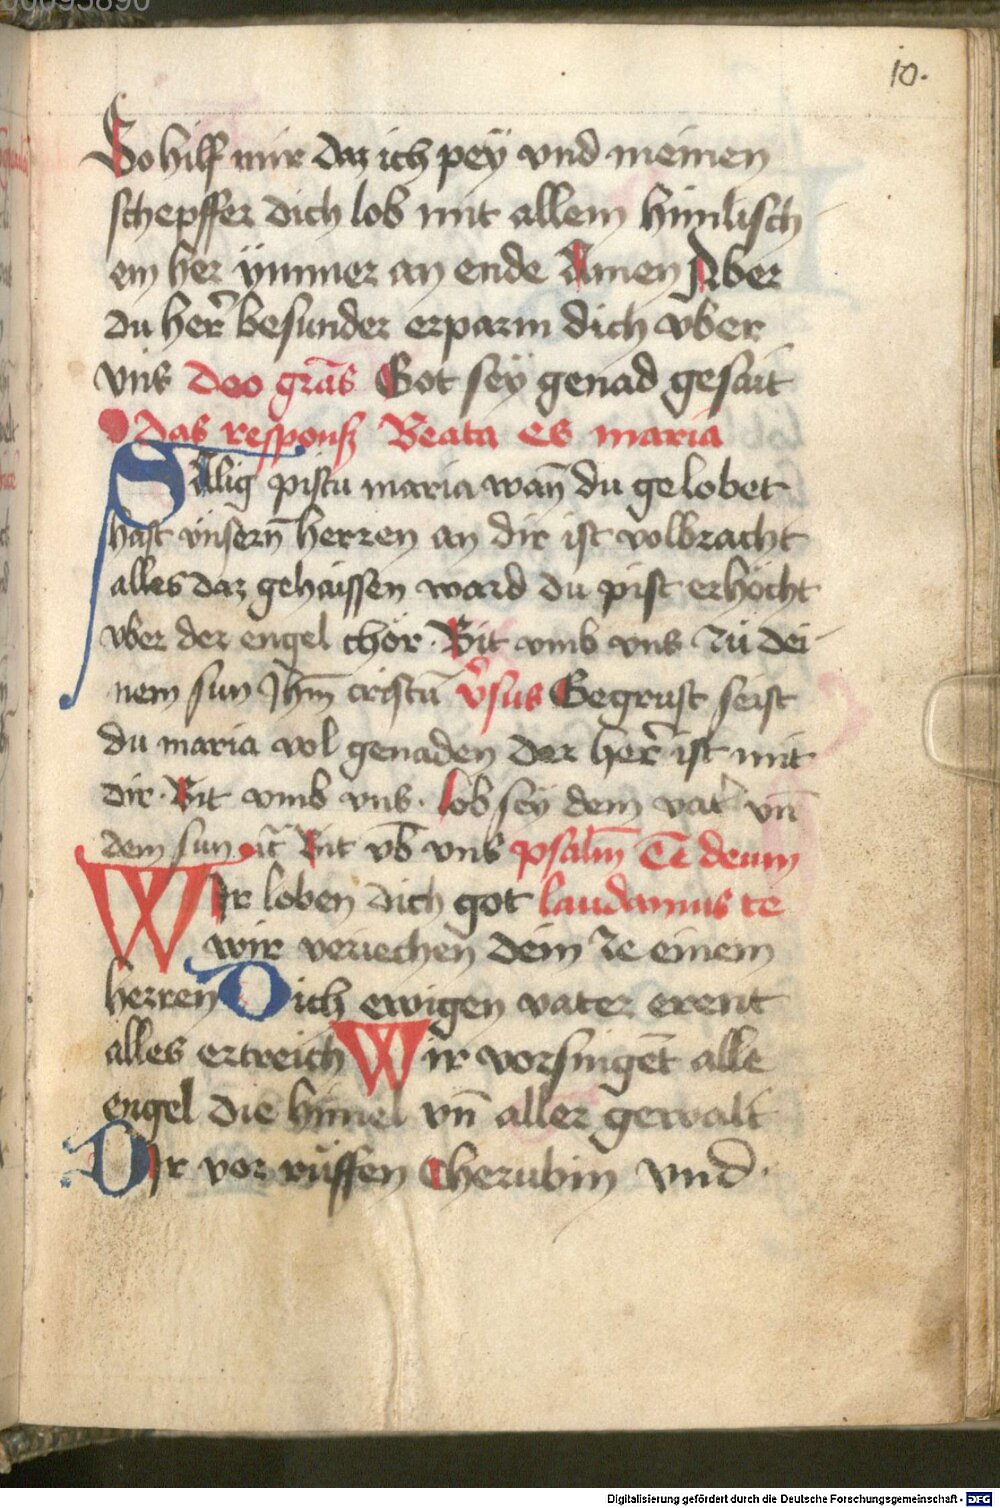 00095890
10.
So hilf mir daz ich pey vnd meinen
schepffer dich lob mit allem himlisch
em her ÿmmer an ende Amen Aber
du her̃ besunder erparm dich vber
vns deo grãs Got seÿ genad gesait
das respons Beata es maria
Sälig pistu maria wañ du gelobet
hast vnsern̄ herren an dir ist volbracht
alles daz gehaissen ward du pist erhöcht
vber der engel chör · Bit vmb vns zů dei
nem sun Jhm̄ cristū v̉sus Gegrust seist
du maria vol genaden der her̃ ist mit
dir · Bit vmb vns · lob seÿ dem vat̉ vn̄
dem sun ut̃ Bit vb̄ vns psalm̄ Te deum
Wir loben dich got laudamus te
wir veriechen dein ze einem
herren Dich ewigen vater erent
alles ertreich Wir vorsingēt alle
engel die himel vn̄ aller gewalt
Dir vor rüffen Cherubin vnd ·
Digitalisierung gefördert durch die Deutsche Forschungsgemeinschaft - DFG